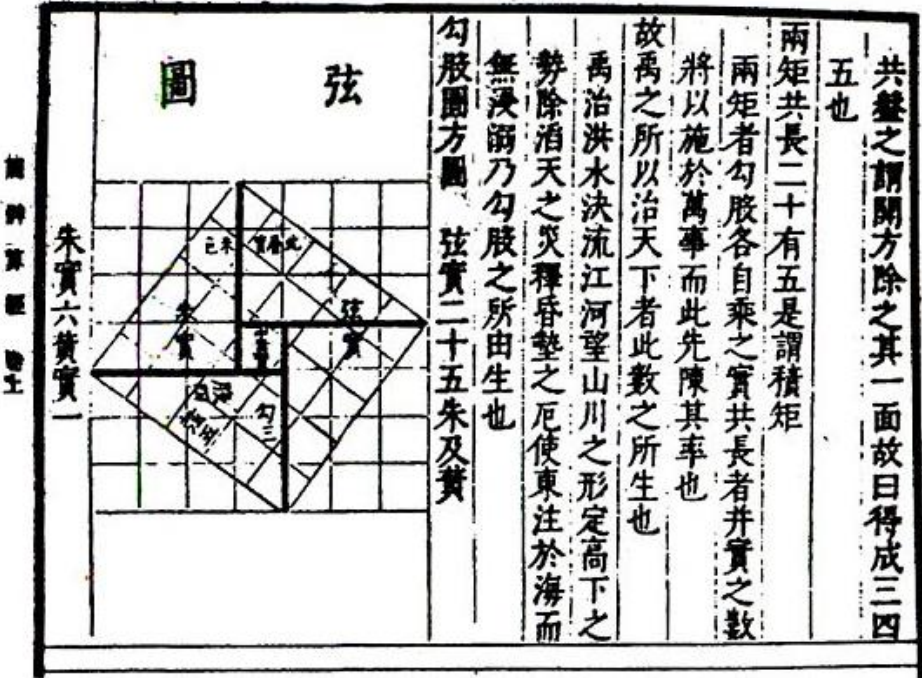 共盤之謂開方除之其一面故曰得成三四
五也
兩矩共長二十有五是謂積矩
兩矩者勾股各自乘之實共長者并實之數
將以施於萬事而此先陳其率也
故禹之所以治天下者此數之所生也
禹治洪水決流江河望山川之形定高下之
勢除滔天之災釋昏墊之厄使東注於海而
無浸溺乃勾股之所由生也
勾股圓方圖 弦實二十五朱及黃
弦圖
弦實
朱實
勾三
朱實六黃實一
周髀算經 卷上